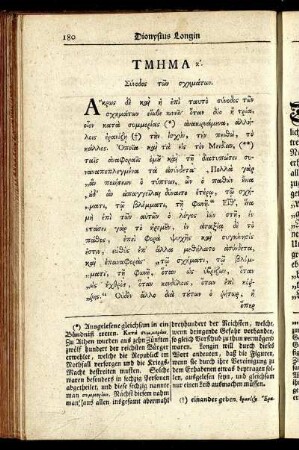 180 Dionysius Longin
ΤΜΗΜΑ κ'.
Σύνοδος τῶν σχημάτων.
Ἄκρως δὲ καὶ ἡ ἐπὶ ταυτὸ σύνοδος τῶν
σχημάτων εἴωθε κινεῖν· ὅταν δύο ἢ τρία
κατὰ συμμορίαν (*) ἀνακιρνάμενα, ἀλλή-
λοις ἐρανίζῃ (†) τὴν ἰσχὺν, τὴν πειθὼ, τὸ
κάλλος. Ὁποῖα καὶ τὰ εἰς τὸν Μειδίαν,
ταῖς ἀναφοραῖς ὁμοῦ καὶ τῇ διατυπώσει
συναναπεπλεγμένα τὰ ἀσύνδετα· „Πολλὰ γὰρ
„ἂν ποιήσειεν ὁ τύπτων, ὧν ὁ παθὼν ἔνια
„οὐδ' ἂν ἀπαγγεῖλαι δύναιτο ἑτέρῳ, τῷ σχή-
„ματι, τῷ βλέμματι, τῇ φωνῇ." Εἶθ', ἵνα
μὴ ἐπὶ τῶν αὐτῶν ὁ λόγος ἰὼν στῇ,
ἐν στάσει γὰρ τὸ ἠρεμοῦν, ἐν ἀταξίᾳ δὲ τὸ
πάθος, ἐπεὶ φορὰ ψυχῆς καὶ συγκίνησίς
ἐστιν, εὐθὺς ἐπ' ἄλλα μεθήλατο ἀσύνδετα,
καὶ ἐπαναφοράς· „τῷ σχήματι, τῷ βλέμ-
„ματι, τῇ φωνῇ, ὅταν ὡς ὑβρίζων, ὅταν
„ὡς ἐχθρὸς, ὅταν κονδύλοις, ὅταν ἐπὶ κόρ-
„ῥης." Οὐδὲν ἄλλο διὰ τούτων ὁ ῥήτωρ, ἢ
ὅπερ
(*) Ausgelesene gleichsam in ein
Bündniß treten. Κατὰ συμμορίαν.
Zu Athen wurden aus zehn Zünften
zwölf hundert der reichsten Bürger
erwehlet, welche die Republik im
Nothfall versorgen und die Kriegs-
Macht bestreiten mußten. Solche
waren besonders in sechzig Personen
abgetheilet, diese sechzig nennte
man συμμορίαι. Nächst diesen nahm
man sonst allen insgesamt abermahl
dreyhundert der Reichsten, welche,
wenn dringende Gefahr vorhanden,
so gleich Vorschub zu thun vermögend
waren. Longin will durch dieses
Wort andeuten, daß die Figuren,
wenn sie durch ihre Vereinigung zu
dem Erhabenen etwas beytragen sollen,
ausgelesen seyn, und gleichsam
nur einen Leib ausmachen müssen.
(†) einander geben. ἐρανίζῃ Ἔρα-